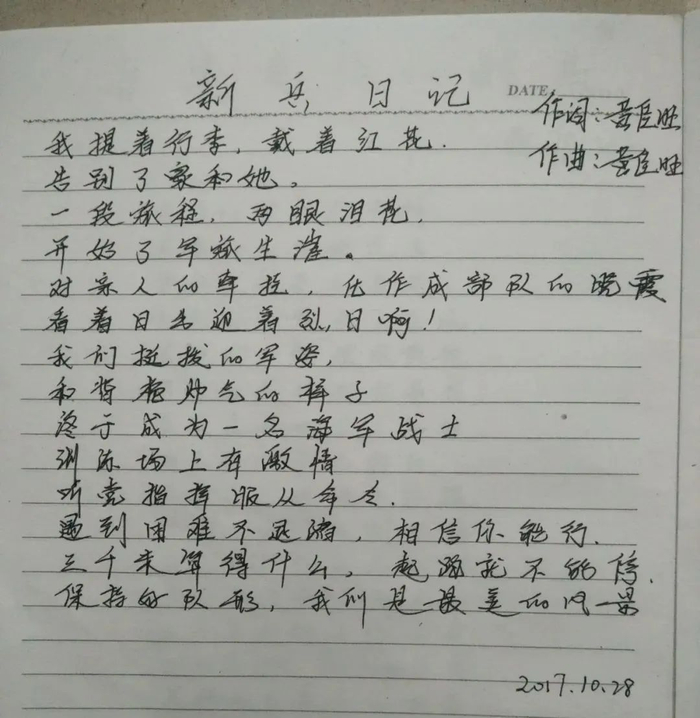 新兵日记
DATE
作词:黄臣旺
作曲:黄臣旺
我提着行李,戴着红花.
告别了家和她。
一段旅程,两眼泪花.
开始了军旅生涯。
对亲人的牵挂,化作成部队的晚霞
看着日出迎着烈日啊!
我们挺拔的军姿,
和背枪帅气的样子
终于成为一名海军战士
训练场上有激情
听党指挥服从命令.
遇到困难不退缩,相信你能行.
三千米算得什么,起跑就不能停.
保持好队形,我们是最美的风景
2017.10.28